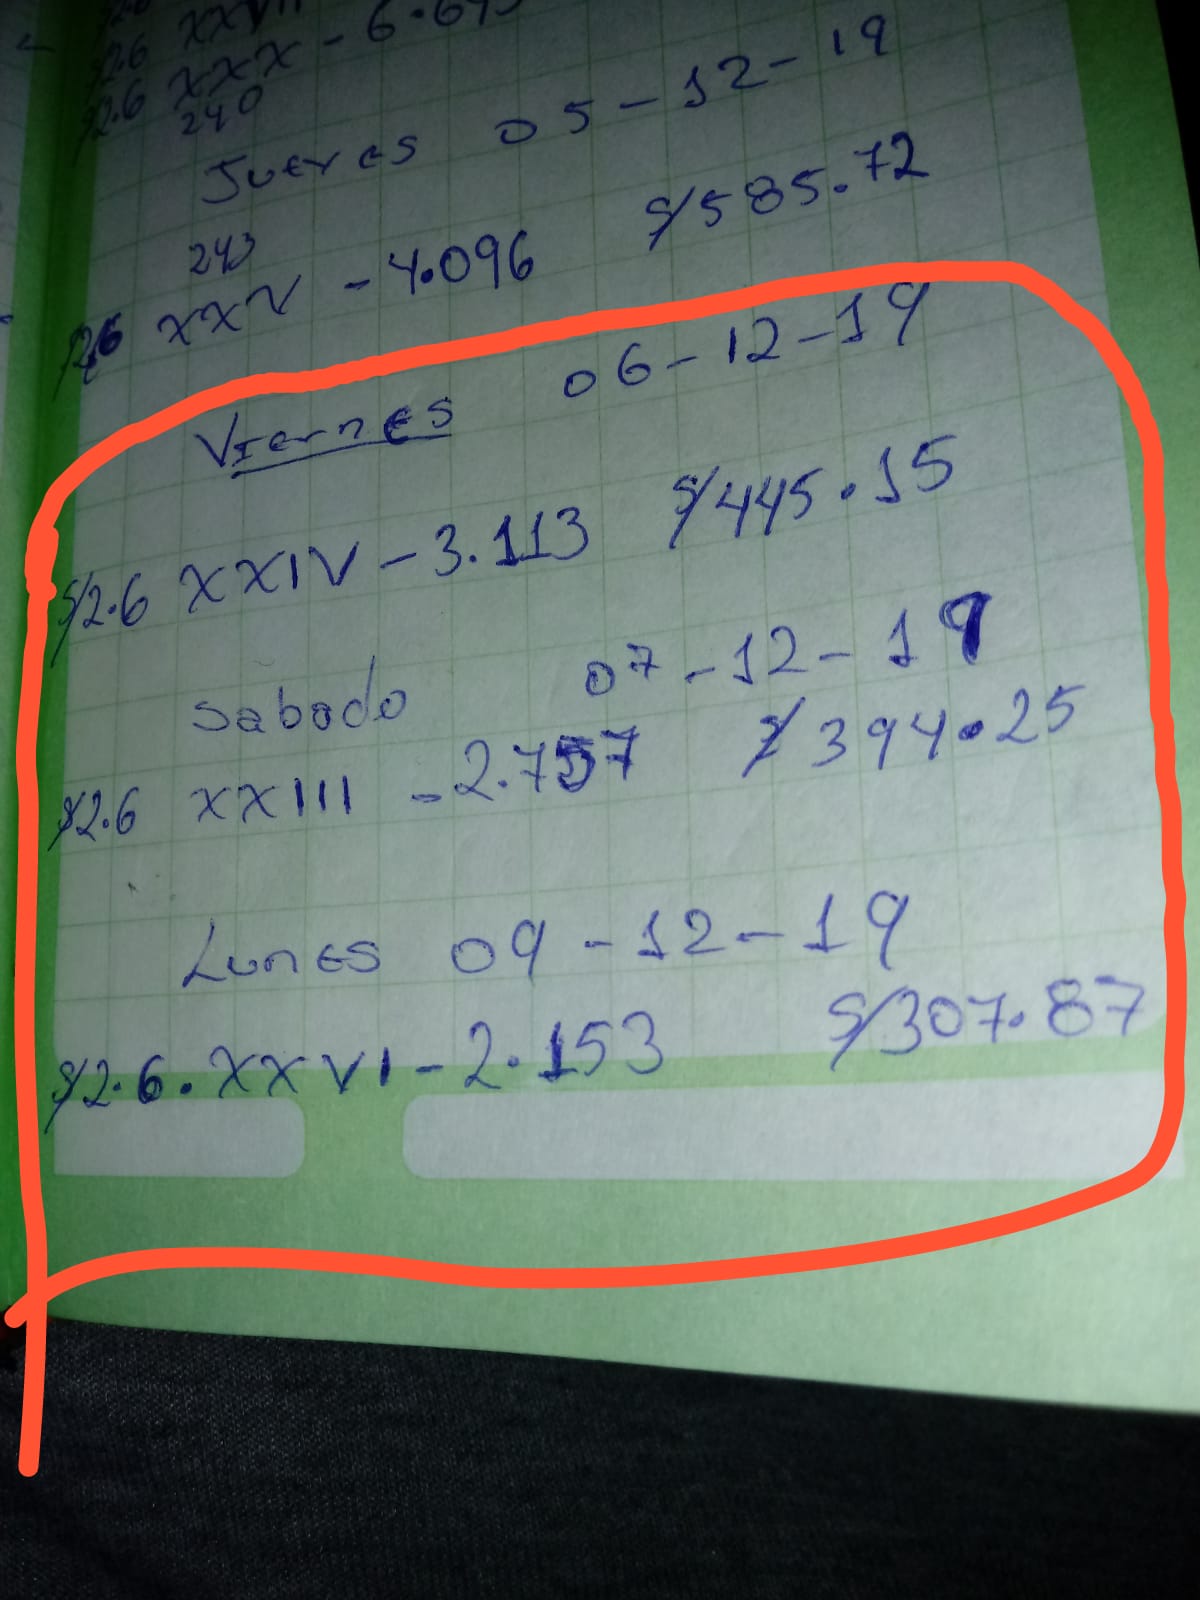 XXX - 6.645
240
Jueves 05-12-19
243
XXV - 4.096 S/585.72
Viernes 06-12-19
S/2.6 XXIV - 3.113 S/445.15
Sabado 07-12-19
S/2.6 XXIII - 2.757 S/394.25
Lunes 09-12-19
S/2.6. XXVI - 2.153 S/307.87